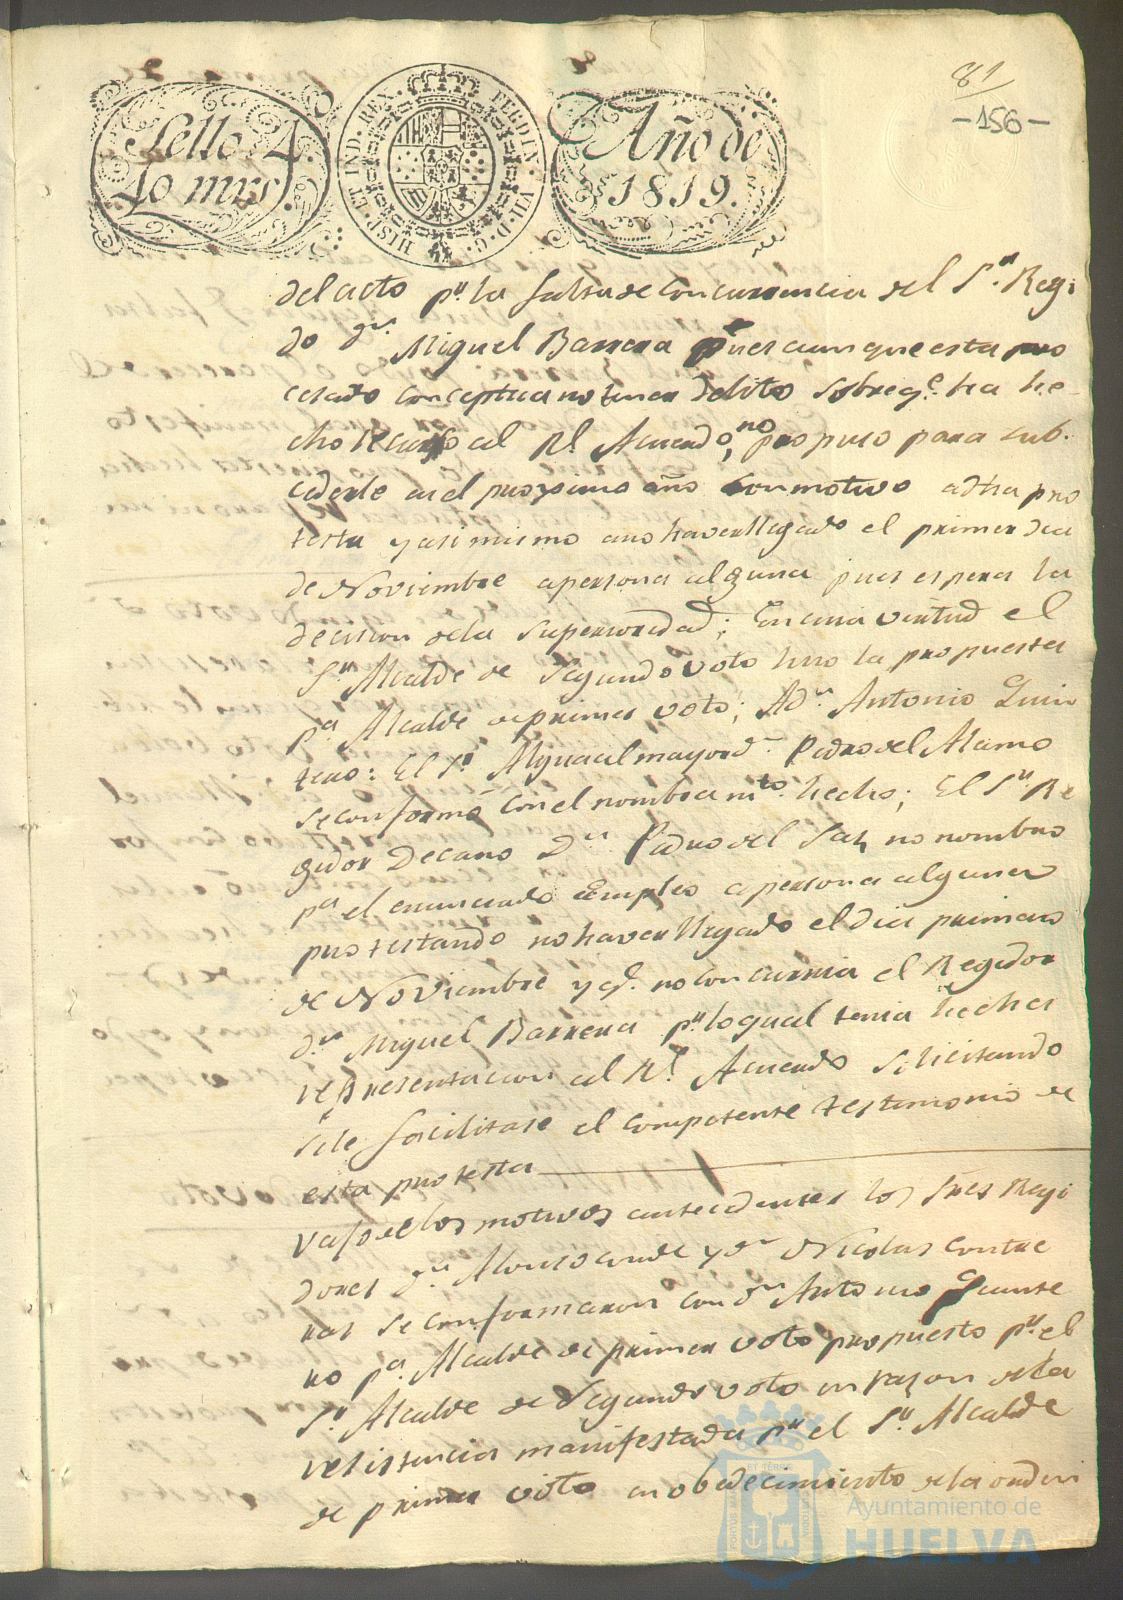 81
-156-
Sello 4.
40 mrs.
HISP. ET IND. REX. FERDIN. VII. D. G.
Año de
1819.
del acto pr. la falta de concurrencia del Sor. Regi
do dn. Miguel Barrera pues aunque esta pro
cesado conceptua no tener delito sobre qe. ha he
cho recurso al Rl. Acuerdo, no propuso para sub
cederle en el proximo año con motivo a dha pro
testa y asi mismo a no haver llegado el primer dia
de Noviembre a persona alguna pues espera la
decision de la superioridad; En cuia virtud el
Sr. Alcalde de segundo voto hizo la propuesta
pa. Alcalde de primer voto; A dn. Antonio Quin
tero: El Sr. Alguacil mayor dn. Pedro del Alamo
se conformó con el nombramto. hecho; El Sr. Re
gidor Decano Dn. Pedro del Saz, no nombro
pa. el enunciado empleo a persona alguna
protestando no haver llegado el dia primero
de Noviembre y qe. no concurria el Regidor
dn. Miguel Barrera pr. lo qual tenia hecha
representacion al Rl. Acuerdo solicitando
se le facilitase el competente testimonio de
esta protesta
Vajo de los motivos antecedentes los Sres Regi
dores dn. Alonso conde y dn. Nicolas Contre
ras se conformaron con dn. Antonio Quinte
ro pa. Alcalde de primer voto propuesto pr. el
Sr. Alcalde de segundo voto en razon de la
resistencia manifestada pr. el Sr. Alcalde
de primer voto en obedecimiento de la orden
Ayuntamiento de
HUELVA